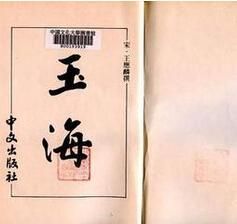 宋·王應麟撰
中國文化大學圖書館
B0093919
玉海
中文出版社